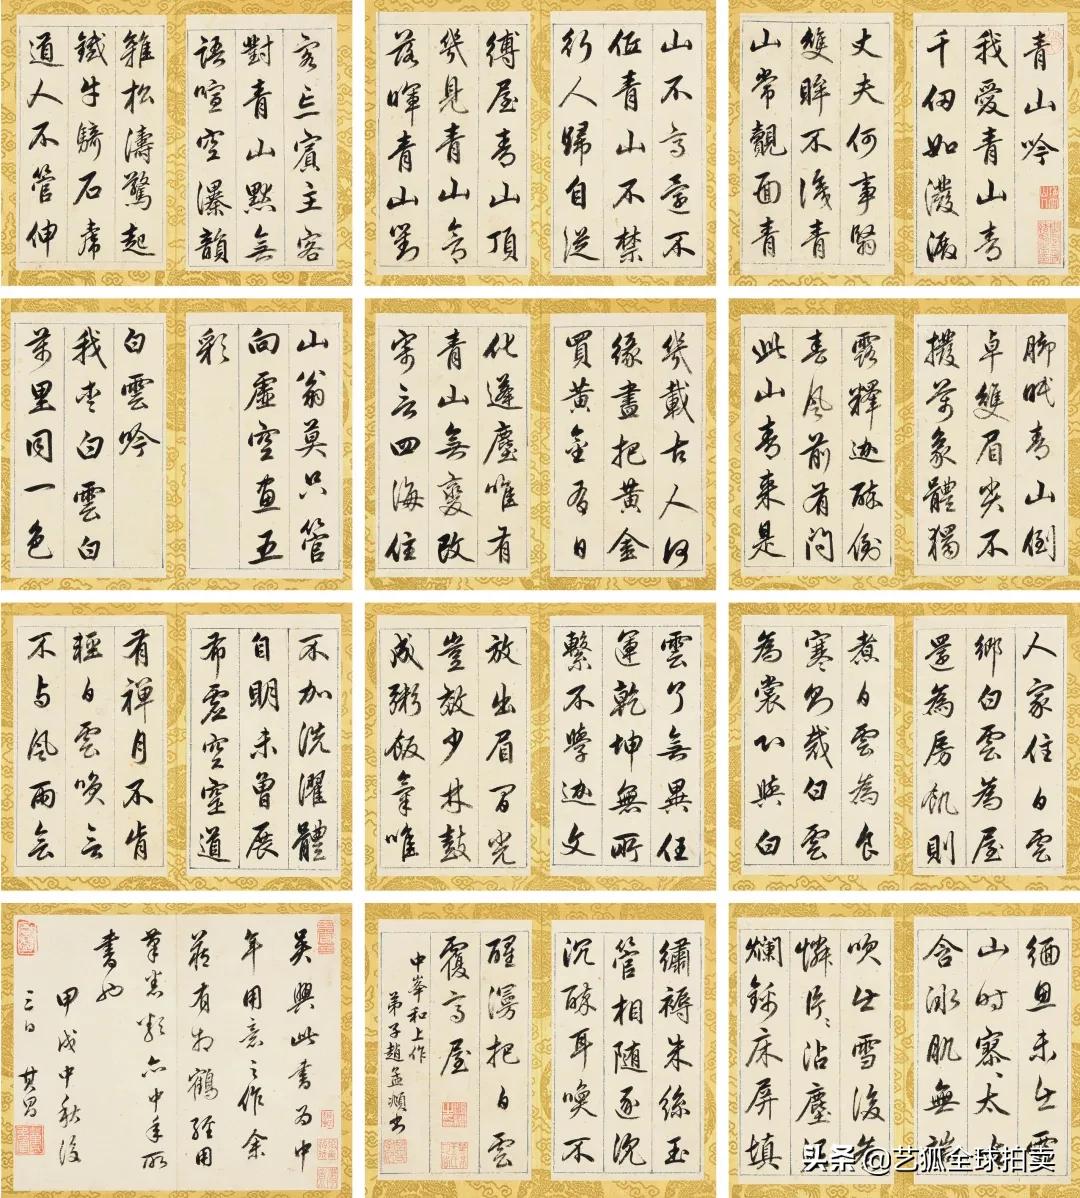 青山吟
我愛青山青
千仞如潑
丈夫何事豎
雙眸不淺青
山常覿面青
山不高還不
低青山不禁
行人歸自從
縛屋青山頂
幾見青山含
落暉青山對
客忘賓主客
對青山默無
語喧空瀑韻
雜松濤驚起
鐵牛騎石虎
道人不管伸
腳眠青山倒
卓雙眉尖不
撥萬象體獨
露釋迦酥倒
春風前有問
此山青來是
幾載古人何
緣盡把黃金
買黃金有日
化蓬塵唯有
青山無變改
寄言四海住
山翁莫只管
向虛空畫五
彩
白雲吟
我愛白雲白
萬里同一色
人家住白雲
鄉白雲為屋
還為房飢則
煮白雲為食
寒即裁白雲
為裳不與白
雲了無異任
運乾坤無所
繫不學迦文
放出眉間光
豈效少林鼓
成粥飯氣唯
不加洗濯體
自明未曾展
布虛空道
有禪月不肯
輕白雲喚言
不與風雨會
緬思未生雲
山時寒太
含冰肌無
吹生雪後
憐片片沾塵
爛床屏填
繡褥朱絲玉
管相隨逐沉
沉酥耳喚不
醒漫把白雲
覆高屋
中峯和上作
弟子趙孟頫書
吳興此書為中
年用意之作余
藏有相鶴經用
筆悉類亦中年所
書也
甲戌中秋後
三日 其昌
头条 @艺狐全球拍卖